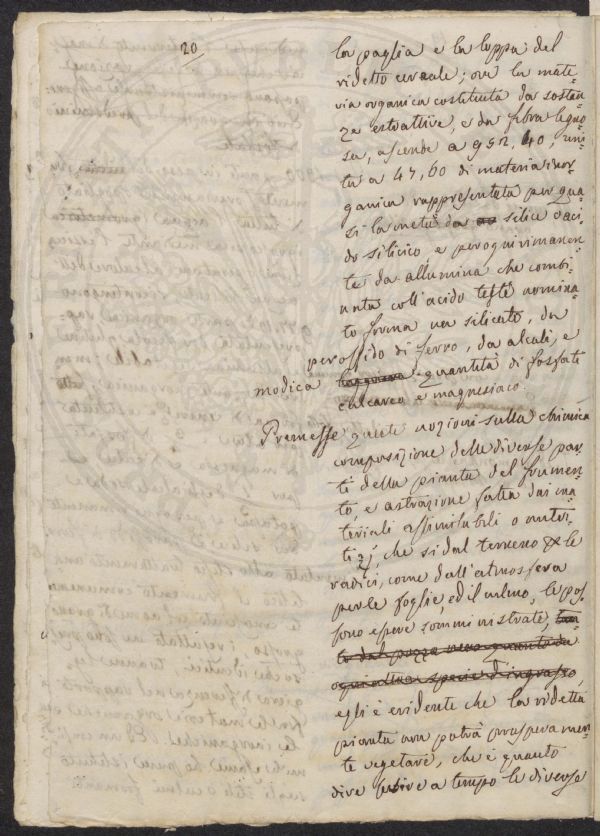 20
la paglia e la loppa del
ridetto cereale; ove la mate-
ria organica costituita da sostan-
ze estrattive, e da fibra legno-
sa, ascende a 952,40, uni-
ta a 47,60 di materia inor-
ganica rappresentata per qua-
si la metà da silice o aci-
do silicico, e per ogni rimanen-
te da allumina che combi-
nata coll'acido testè nomina-
to forma un silicato, da
perossido di ferro, da alcali, e
modica quantità di fosfati
calcareo e magnesiaco.
Premesse queste nozioni sulla chimica
composizione delle diverse par-
ti della pianta del frumen-
to, e astrazione fatta dai ma-
teriali assimilabili o nutri-
tizj, che sì dal terreno le
radici, come dall'atmosfera
per le foglie, ed il culmo, le pos-
sono essere somministrate,
egli è evidente che la ridetta
pianta non potrà prosperamen-
te vegetare, che è quanto
dire a tempo le diverse